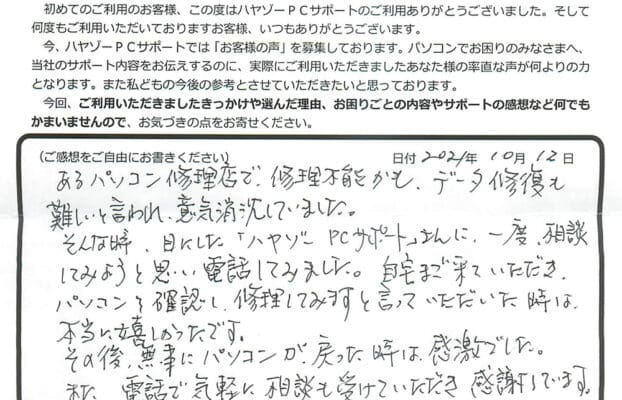 初めてのご利用のお客様、この度はハヤゾーPCサポートのご利用ありがとうございました。そして
何度もご利用いただいておりますお客様、いつもありがとうございます。
今、ハヤゾーPCサポートでは「お客様の声」を募集しております。パソコンでお困りのみなさまへ、
当社のサポート内容をお伝えするのに、実際にご利用いただきましたあなた様の率直な声が何よりの力
となります。また私どもの今後の参考とさせていただきたいと思っております。
今回、ご利用いただきましたきっかけや選んだ理由、お困りごとの内容やサポートの感想など何でも
かまいませんので、お気づきの点をお寄せください。
(ご感想をご自由にお書きください) 日付 2021年 10月 12日
あるパソコン修理店で、修理不能かも、データ修復も
難しいと言われ、意気消沈していました。
そんな時、目にした「ハヤゾー PCサポート」さんに、一度、相談
してみようと思い電話してみました。自宅まで来ていただき、
パソコンを確認し、修理してみますと言っていただいた時は、
本当に嬉しかったです。
その後、無事にパソコンが、戻った時は、感激でした。
また、電話で気軽に相談も受けていただき感謝しています。